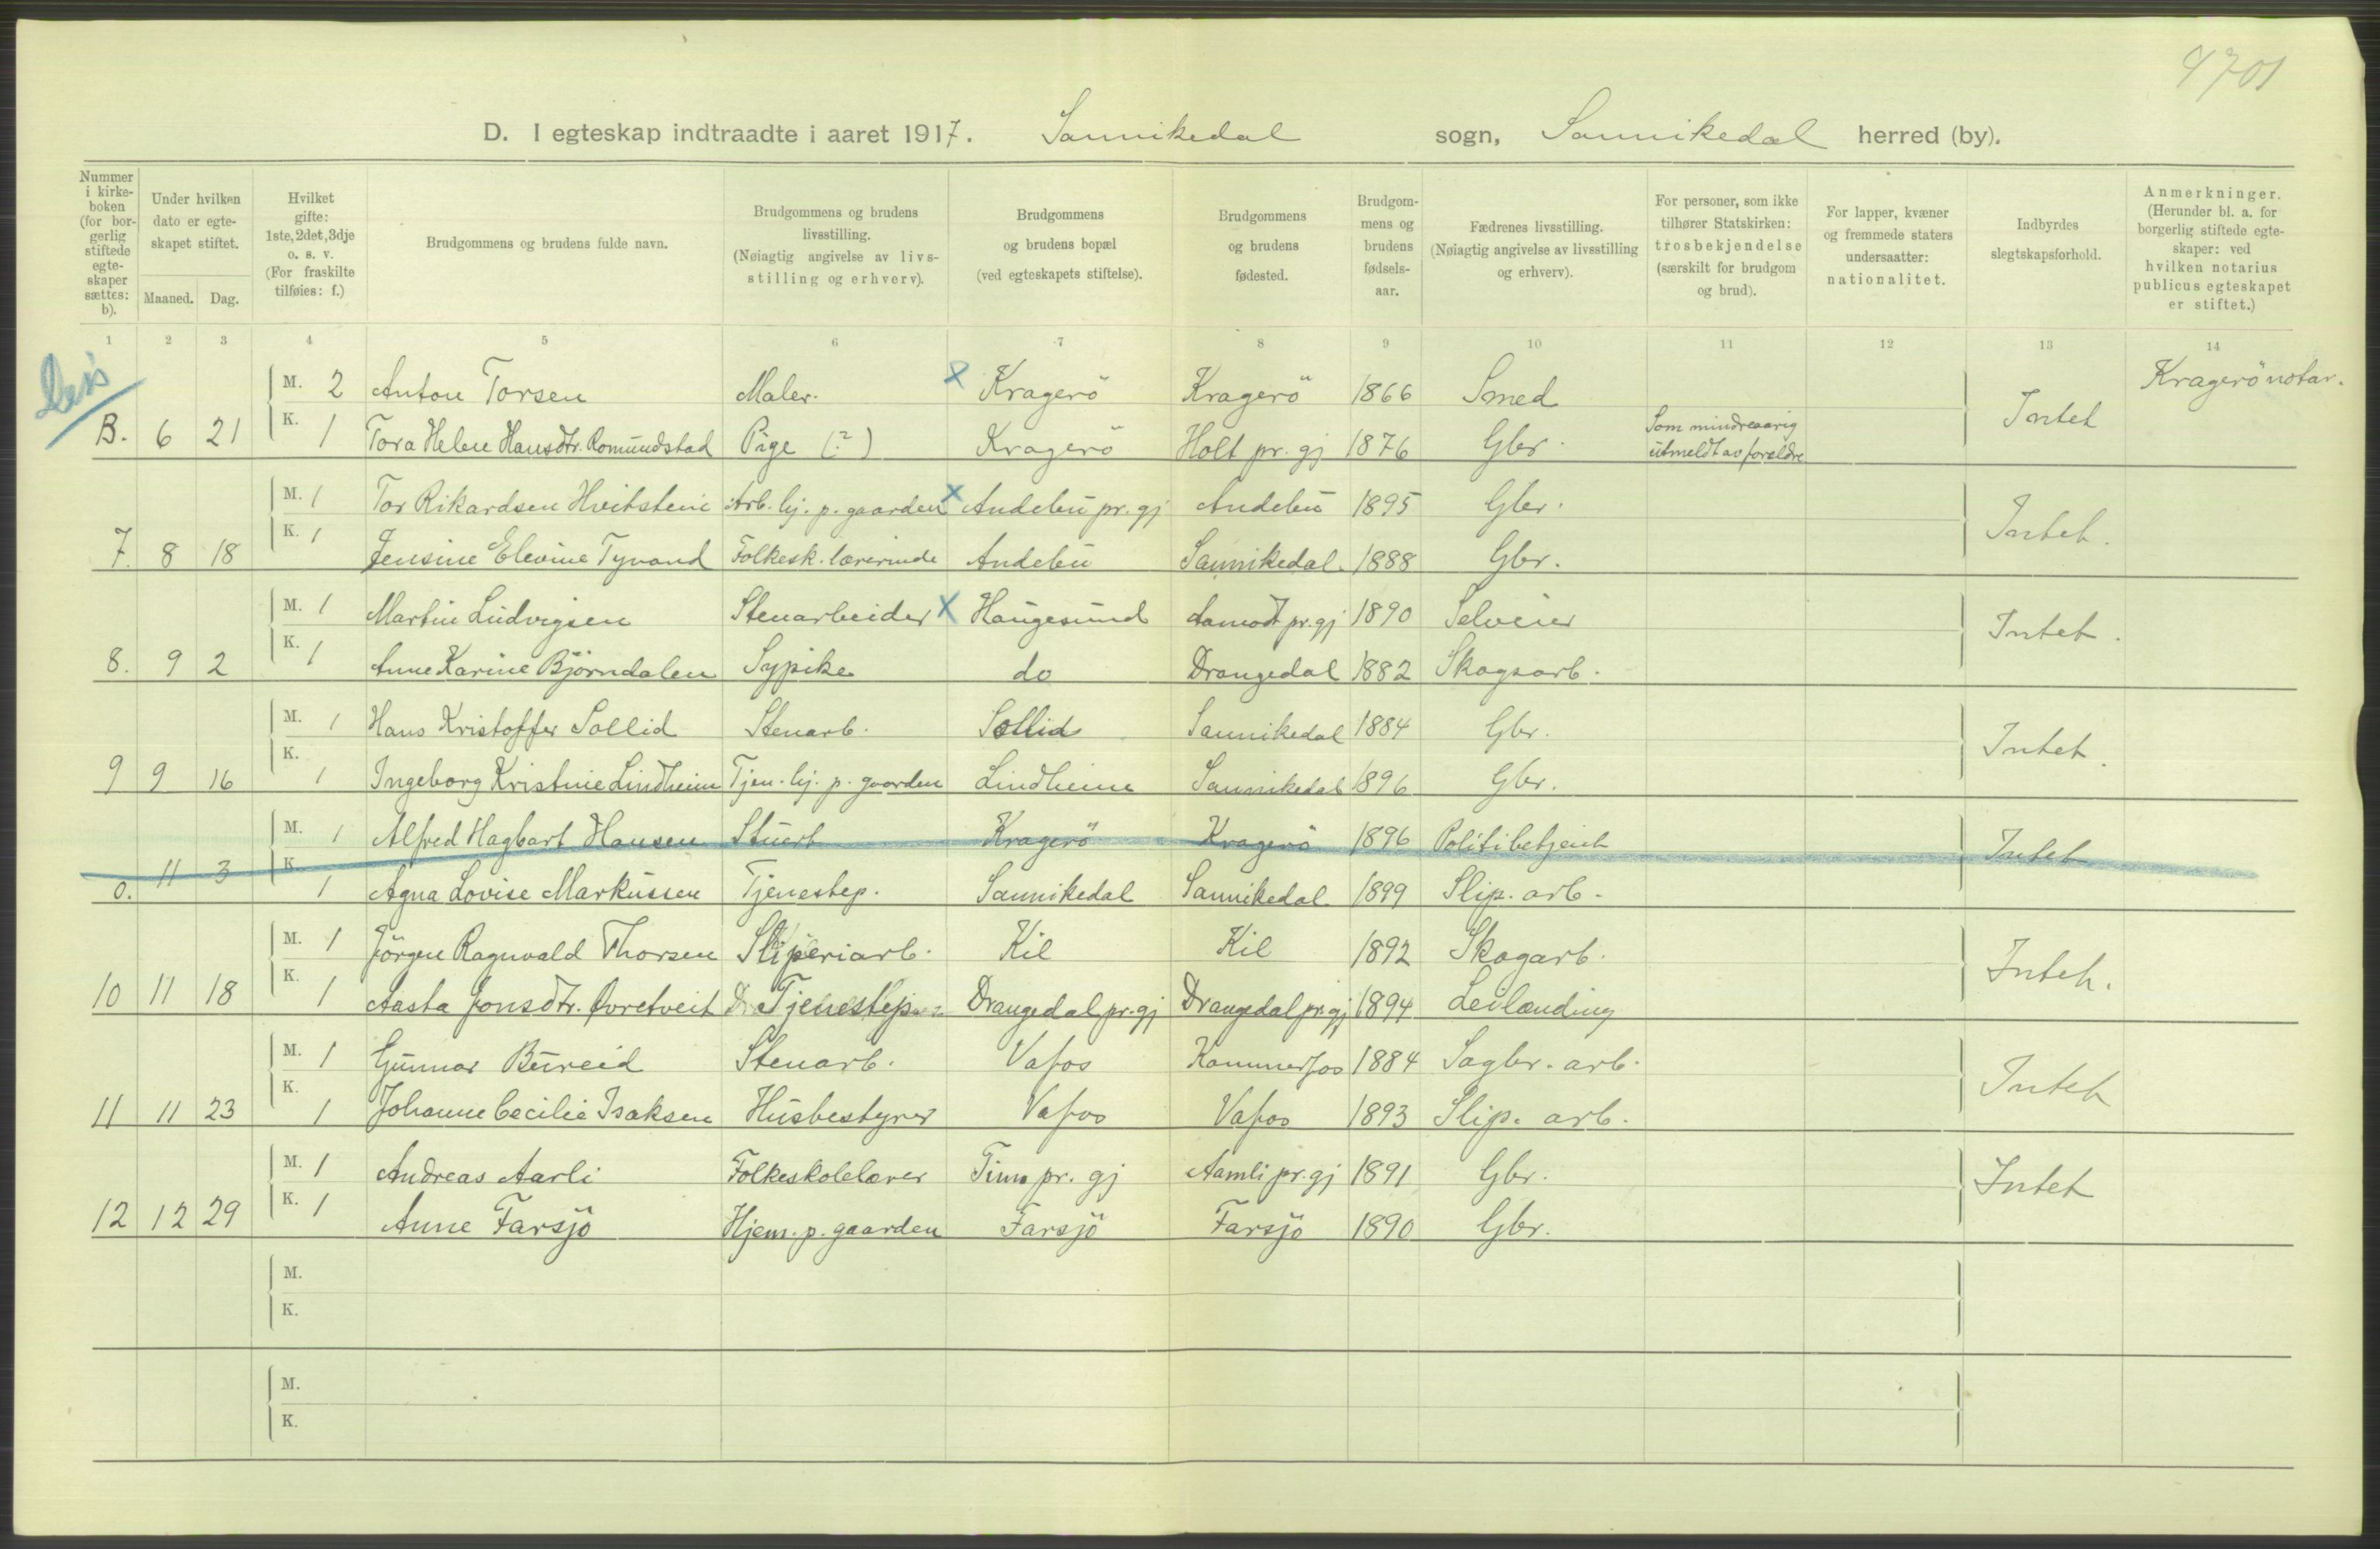 4701
D. I egteskap indtraadte i aaret 1917. Sannikedal sogn, Sannikedal herred (by).
Nummer i kirke-boken (for bor-gerlig stiftede egte-skaper sættes: b).
Under hvilken dato er egte-skapet stiftet.
Maaned. Dag.
Hvilket gifte: 1ste, 2det, 3dje o. s. v. (For fraskilte tilføies: f.)
Brudgommens og brudens fulde navn.
Brudgommens og brudens livsstilling. (Nøiagtig angivelse av livs-stilling og erhverv).
Brudgommens og brudens bopæl (ved egteskapets stiftelse).
Brudgommens og brudens fødested.
Brudgom-mens og brudens fødsels-aar.
Fædrenes livsstilling. (Nøiagtig angivelse av livsstilling og erhverv).
For personer, som ikke tilhører Statskirken: trosbekjendelse (særskilt for brudgom og brud).
For lapper, kvæner og fremmede staters undersaatter: nationalitet.
Indbyrdes slegtskapsforhold.
Anmerkninger. (Herunder bl. a. for borgerlig stiftede egte-skaper: ved hvilken notarius publicus egteskapet er stiftet.)
1 2 3 4 5 6 7 8 9 10 11 12 13 14
M. 2 Anton Torsen Maler. x Kragerö Kragerö 1866 Smed Intet Kragerö notar.
B. 6 21 K. 1 Tora Helene Hansdtr. Romundstad Pige (?) Kragerö Holt pr. gj 1876 Gbr. Som mindreaarig utmeldt av forældre
M. 1 Tor Rikardsen Hvitstein Arb. hj. p. gaarden x Andebu pr. gj Andebu 1895 Gbr. Intet.
7. 8 18 K. 1 Jensine Elevine Tyvand Folkesk. lærerinde Andebu Sannikedal. 1888 Gbr.
M. 1 Martin Ludvigsen Stenarbeider x Haugesund Aamodt pr. gj 1890 Selveier Intet.
8. 9 2 K. 1 Anne Karine Björndalen Sypike do Drangedal 1882 Skogsarb.
M. 1 Hans Kristoffer Sollid Stenarb. Sollid Sannikedal 1884 Gbr. Intet.
9 9 16 K. 1 Ingeborg Kristine Lindheim Tjen. hj. p. gaarden Lindheim Sannikedal 1896 Gbr.
M. 1 Alfred Hagbart Hansen Stuert Kragerö Kragerö 1896 Politibetjent Intet
0. 11 3 K. 1 Agna Lovise Markussen Tjenestep. Sannikedal Sannikedal. 1899 Slip. arb.
M. 1 Jörgen Ragnvald Thorsen Sliperiarb. Kil Kil 1892 Skogarb. Intet.
10 11 18 K. 1 Aasta Jonsdtr. Øvretveit Tjenestep. Drangedal pr. gj Drangedal pr. gj 1894 Leilænding
M. 1 Gunnar Bureid Stenarb. Vafos Kammerfos 1884 Sagbr. arb. Intet
11 11 23 K. 1 Johanne Cecilie Isaksen Husbestyrer Vafos Vafos 1893 Slip. arb.
M. 1 Andreas Aarli Folkeskolelærer Time pr. gj Aamli pr. gj 1891 Gbr. Intet
12 12 29 K. 1 Anne Farsjö Hjem. p. gaarden Farsjö Farsjö 1890 Gbr.
M.
K.
M.
K.